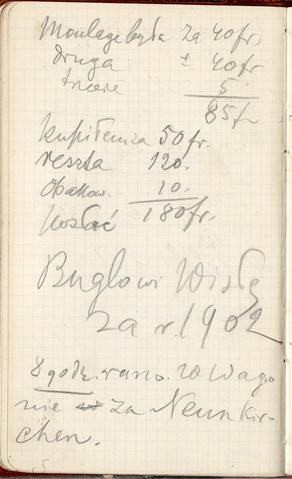 Moulage była za 40 fr.
druga ± 40 fr
trzecie 5
85 fr
kupiłem za 50 fr.
reszta 120.
Opakow. 10.
posłać 180 fr.
Buglowi Wisłę
za r. 1902
8 godz. rano. W wago
nie za Neunkir-
chen.